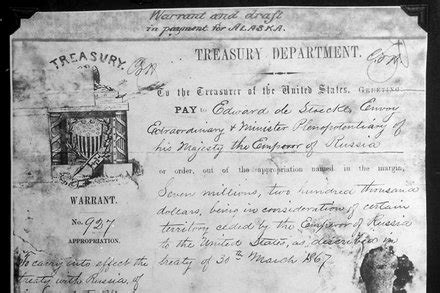 Warrant and draft
in payment for ALASKA.
TREASURY
TREASURY DEPARTMENT.
To the Treasurer of the United States, GREETING
PAY to Edward de Stoeckl, Envoy
Extraordinary & Minister Plenipotentiary of
his Majesty the Emperor of Russia
or order, out of the appropriation named in the margin,
Seven millions, two hundred thousand
dollars, being in consideration of certain
territory ceded by the Emperor of Russia
to the United States, as described in
treaty of 30th March 1867.
WARRANT.
No. 927
APPROPRIATION.
To carry into effect the
treaty with Russia, of